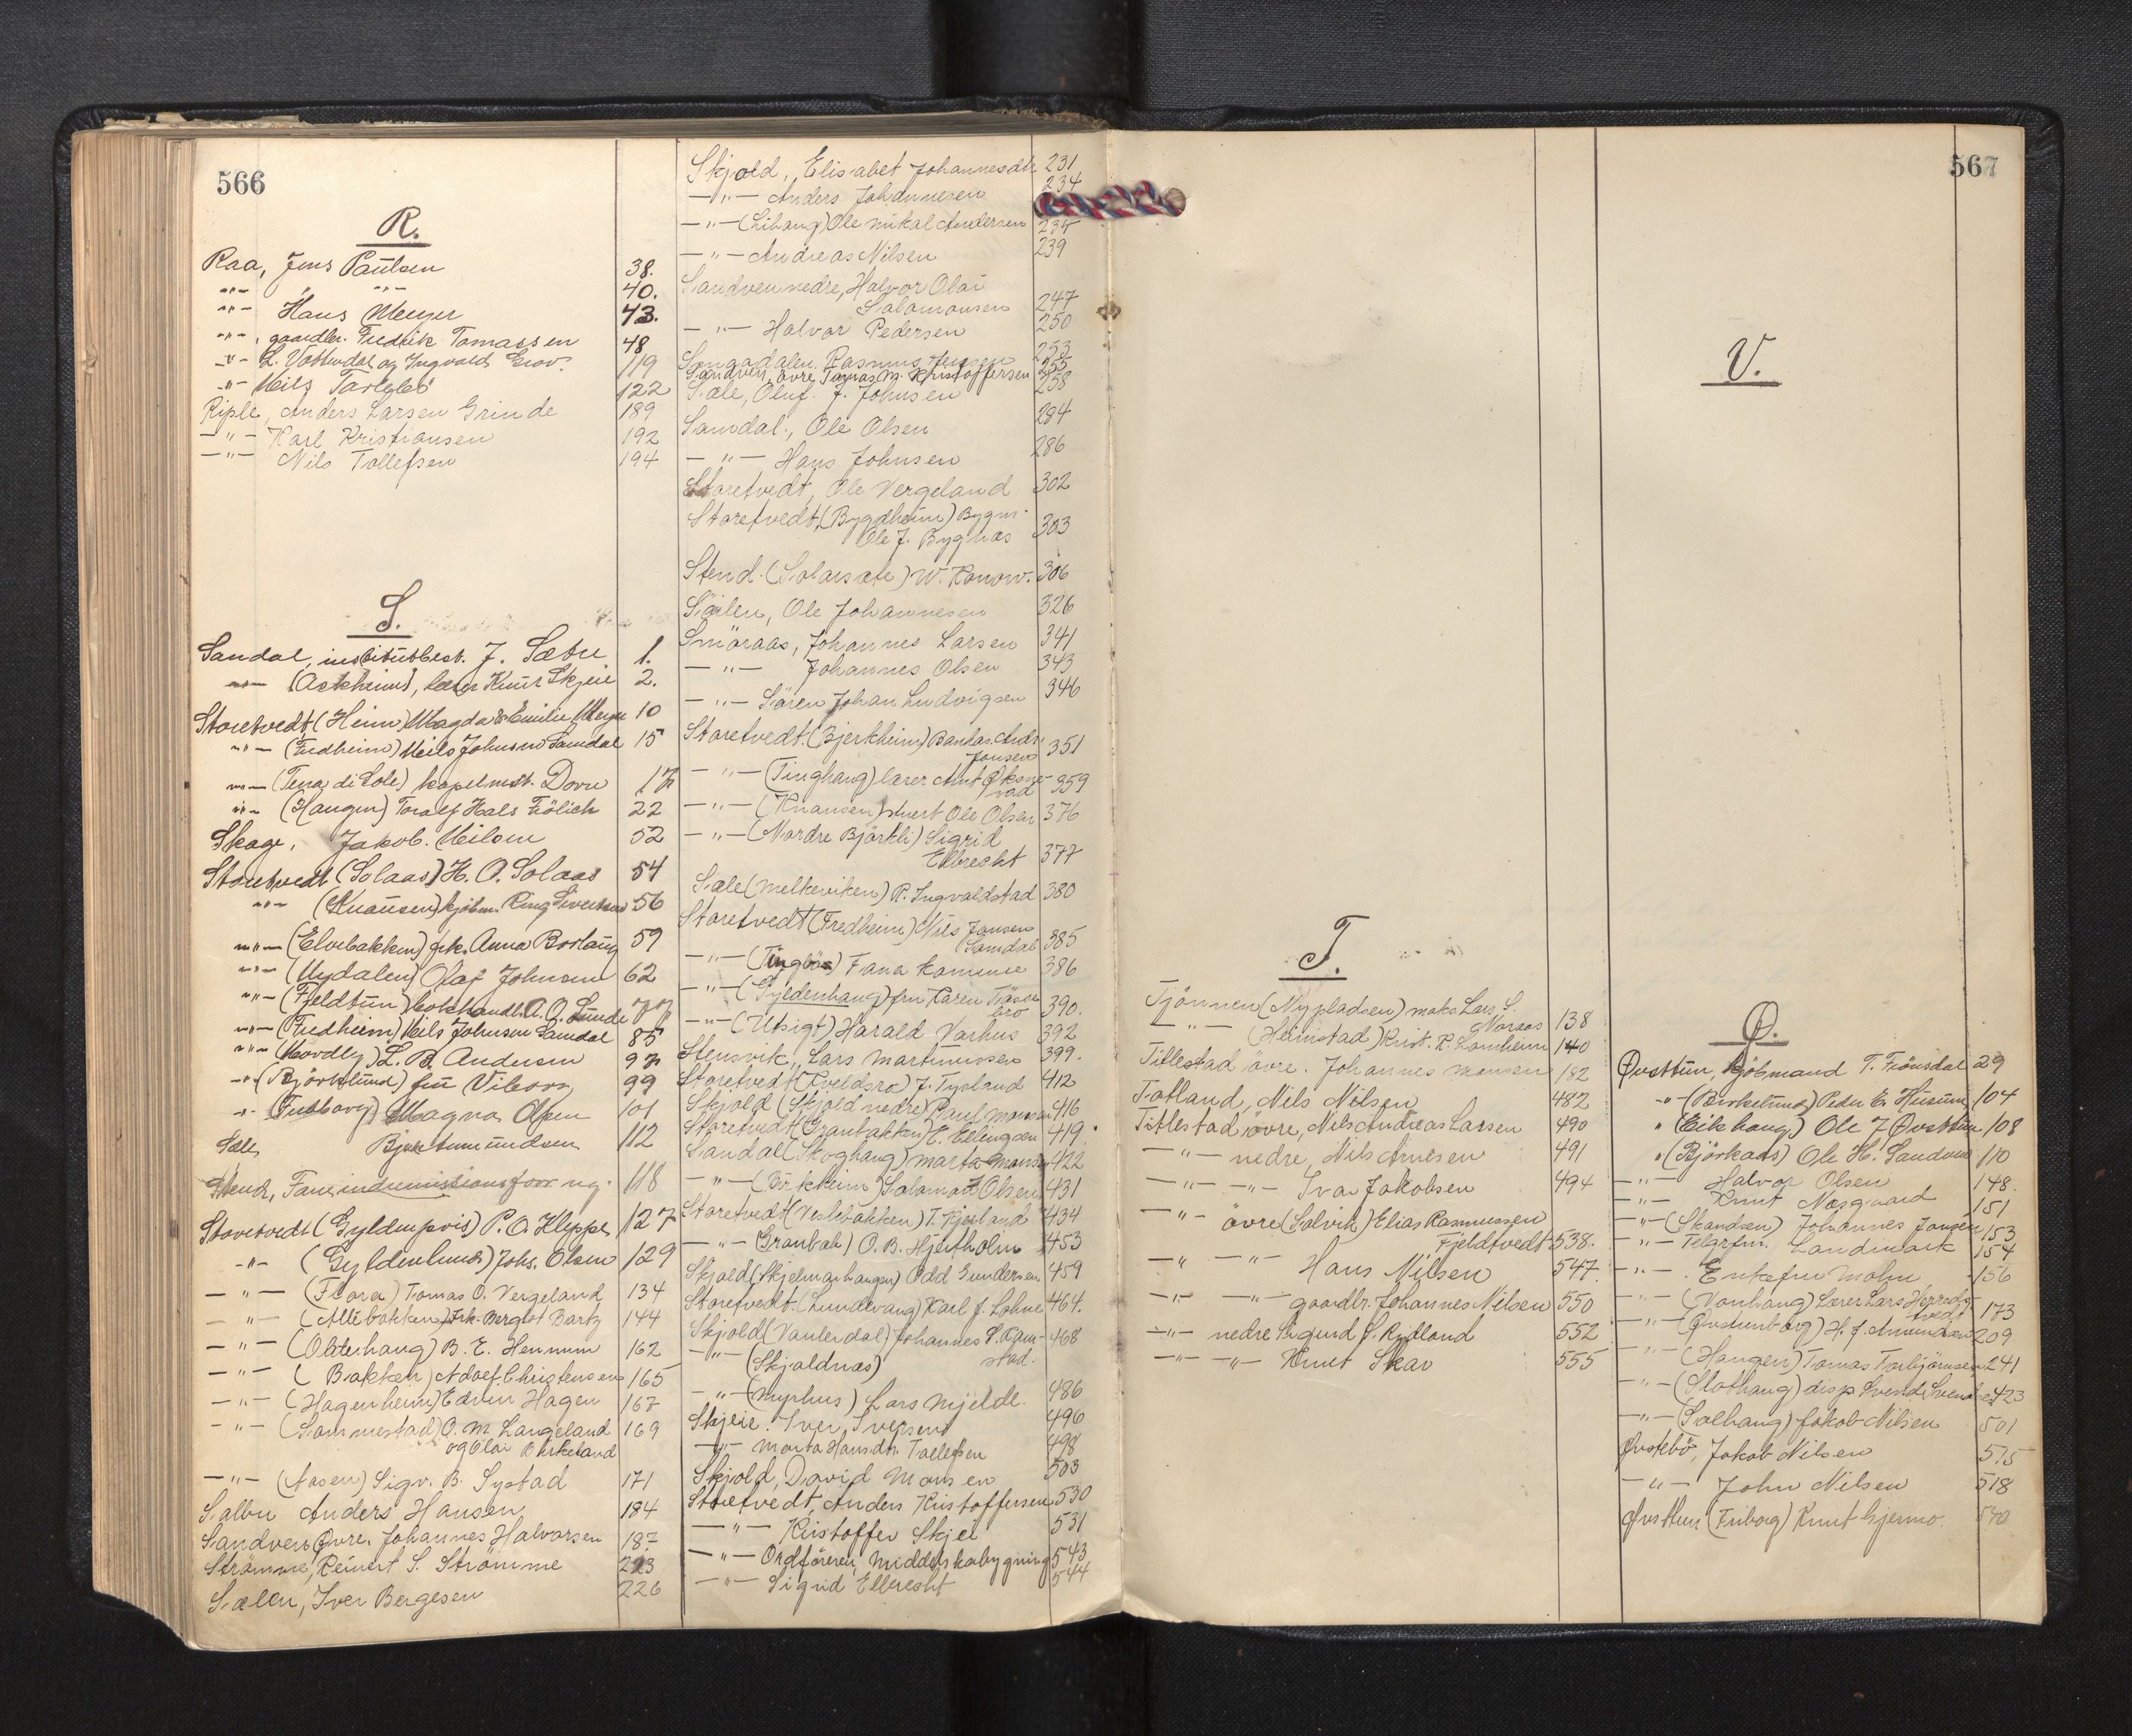 566
R.
Raa, Jens Paulsen 38.
-"- " -"- 40.
-"- Hans Meyer 43.
-"-, gaardbr. Fredrik Tomassen 48
-"- L. Vottendal og Ingvald Grov. 119
-"- Nils 122
Riple, Anders Larsen Grinde 189
-"- Karl Kristiansen 192
-"- Nils Tollefsen 194
S.
Sandal, institutbest. J. Sætre 1.
-"- (Askheim), lærer Knut Skjeie 2.
Storetvedt (Heim) Magda & Emilie Meyer 10
-"- (Fredheim) Nils Johnsen Samdal 15
-"- (Tena di Sole) kapelmst. Dovre 17
-"- (Haugen) Toralf Hals Frölich 22
Skage, Jakob Nilsen 52
Storetvedt (Solaas) H. O. Solaas 54
-"- (Knausen) kjöbm. Ring Sivertsen 56
-"- (Elvebakken) frk. Anna Borlaug 59
-"- (Nydalen) Olaf Johnsen 62
-"- (Fjeldtun) A. O. Lunde 77
-"- (Fredheim) Nils Johnsen Samdal 85
-"- (Movdly) L. B. Andersen 97
-"- (Björklund) fru Viborg 99
-"- Magna Olsen 101
Sæle, 112
Stend, Fana indremissionsforening 118
Storetvedt (Gyldenpris) P. O. Kleppe 127
-"- (Gyldenlund) Johs. Olsen 129
-"- (Flora) Tomas O. Vergeland 134
-"- (Allébakken) Frk. Bergljot Bartz 144
-"- (Olderhaug) B. E. Hennum 162
-"- (Bakken) Adolf Christensen 165
-"- (Hagenheim) Edvin Hagen 167
-"- (Sammestad) O. M. Langeland 169
og Olai Birkeland
-"- (Aasen) Sigv. B. Systad 171
Salbu Anders Hansen 184
Sandven Övre, Johannes Halvorsen 187
Strömme, Reinert S. Strömme 223
Sælen, Iver Bergesen 226
Skjold, Elisabet Johannesdtr 231
-"- Anders Johannesen 234
-"- (Lihaug) Ole Mikal Andersen 234
-"- Andreas Nilsen 239
Sandven nedre, Halvor Olai
Salamonsen 247
-"- Halvor Pedersen 250
Songadalen, Rasmus Jensen 253
Sandven, övre Tomas M. Kristoffersen 255
Sæle, Oluf J. Johnsen 258
Samdal, Ole Olsen 284
-"- Hans Johnsen 286
Storetvedt, Ole Vergeland 302
Storetvedt, (Bygdheim) Bygm.
Ole J. Bygnæs 303
Stend (Solarsæte) W. Konow. 306
Sælen, Ole Johannesen 326
Smöraas, Johannes Larsen 341
-"- Johannes Olsen 343
-"- Sören Johan Ludvigsen 346
Storetvedt (Bjerkheim) Bankas. Andr.
Jonsen 351
-"- (Tinghaug) lærer Amt Oksne-
vad 359
-"- (Knausen) Ole Olsen 376
-"- (Nordre Björkli) Sigrid
Ellbrecht 377
Sæle (Melkeviken) R. Ingvaldstad 380
Storetvedt (Fredheim) Nils Jonsen
Samdal 385
-"- (Tingbö) Fana kommune 386
-"- (Gyldenhaug) fru Karen
390.
-"- (Utsigt) Harald Varhus 392
Stensvik, Lars Martinussen 399.
Storetvedt (Kveldsro) J. Tysland 412
Skjold (Skjold nedre) Paul Monsen 416
Storetvedt (Granbakken) E. Ellingsen 419.
Sandal (Skoghaug) Marta Monsen 422
-"- (Birkheim) Salamon Olsen 431
Storetvedt (Vestebakken) T. Kjerland 434
-"- Granbak) O. B. Hjertholm 453
Skjold (Skjelmerhaugen) Odd Gundersen 459
Storetvedt. (Lundevang) Karl J. Lohne 464.
Skjold (Vanlendal) Johannes H. Ram-
stad. 468
-"- (Skjoldnæs)
-"- (Myrhus) Lars Mjelde. 486
Skjeie. Iver Iversen 496
-"- Marta Hansdtr. Tollefsen 498
Skjold, David Monsen 503
Storetvedt, Anders Kristoffersen 530
-"- Kristoffer Skjei 531
-"- Ordföreren, Middelskolebygning 543
-"- Sigrid Ellbrecht 544
567
V.
T.
Tjönnen (Nypladsen) maks Lars S.
Moraas 138
-"- (Heimstad) Krist. R. Lomheim 140
Titlestad övre. Johannes Monsen 182
Totland, Nils Nilsen 482
Titlestad övre, Nils Andreas Larsen 490
-"- nedre, Nils Arnesen 491
-"- -"- Ivar Jakobsen 494
-"- övre (Solvik) Elias Rasmussen
Fjeldtvedt 538.
-"- -"- Hans Nilsen 547.
-"- -"- gaardbr. Johannes Nilsen 550
-"- nedre Sigurd J. Rydland 552
-"- -"- Knut Skar 555
Ø.
Øvsttun, kjöbmand T. Frönsdal 29
-"- (Birkelund) Peder E. Husum 104
" (Eikhaug) Ole J Øvsttun 108
" (Björkaas) Ole H. Sandven 110
-"- Halvor Olsen 148.
-"- Knut Næsgaard 151
-"- (Skandsen) Johannes Jansen 153
-"- Telgrfm. Landmark 154
-"- Enkefru Mohn 156
-"- (Vonhaug) Lærer Lars Herreds-
tvedt 173
-"- (Øvstunborg) H. J. Amundsen 209
-"- (Haugen) Tomas Torbjörnsen 241
-"- (Slothaug) disp Svend Svendsen 423
-"- (Solhaug) Jakob Nilsen 501
Øvstebö, Jakob Nilsen 515
-"- John Nilsen 518
Øvsttun (Friborg) Knut Gjermo. 540